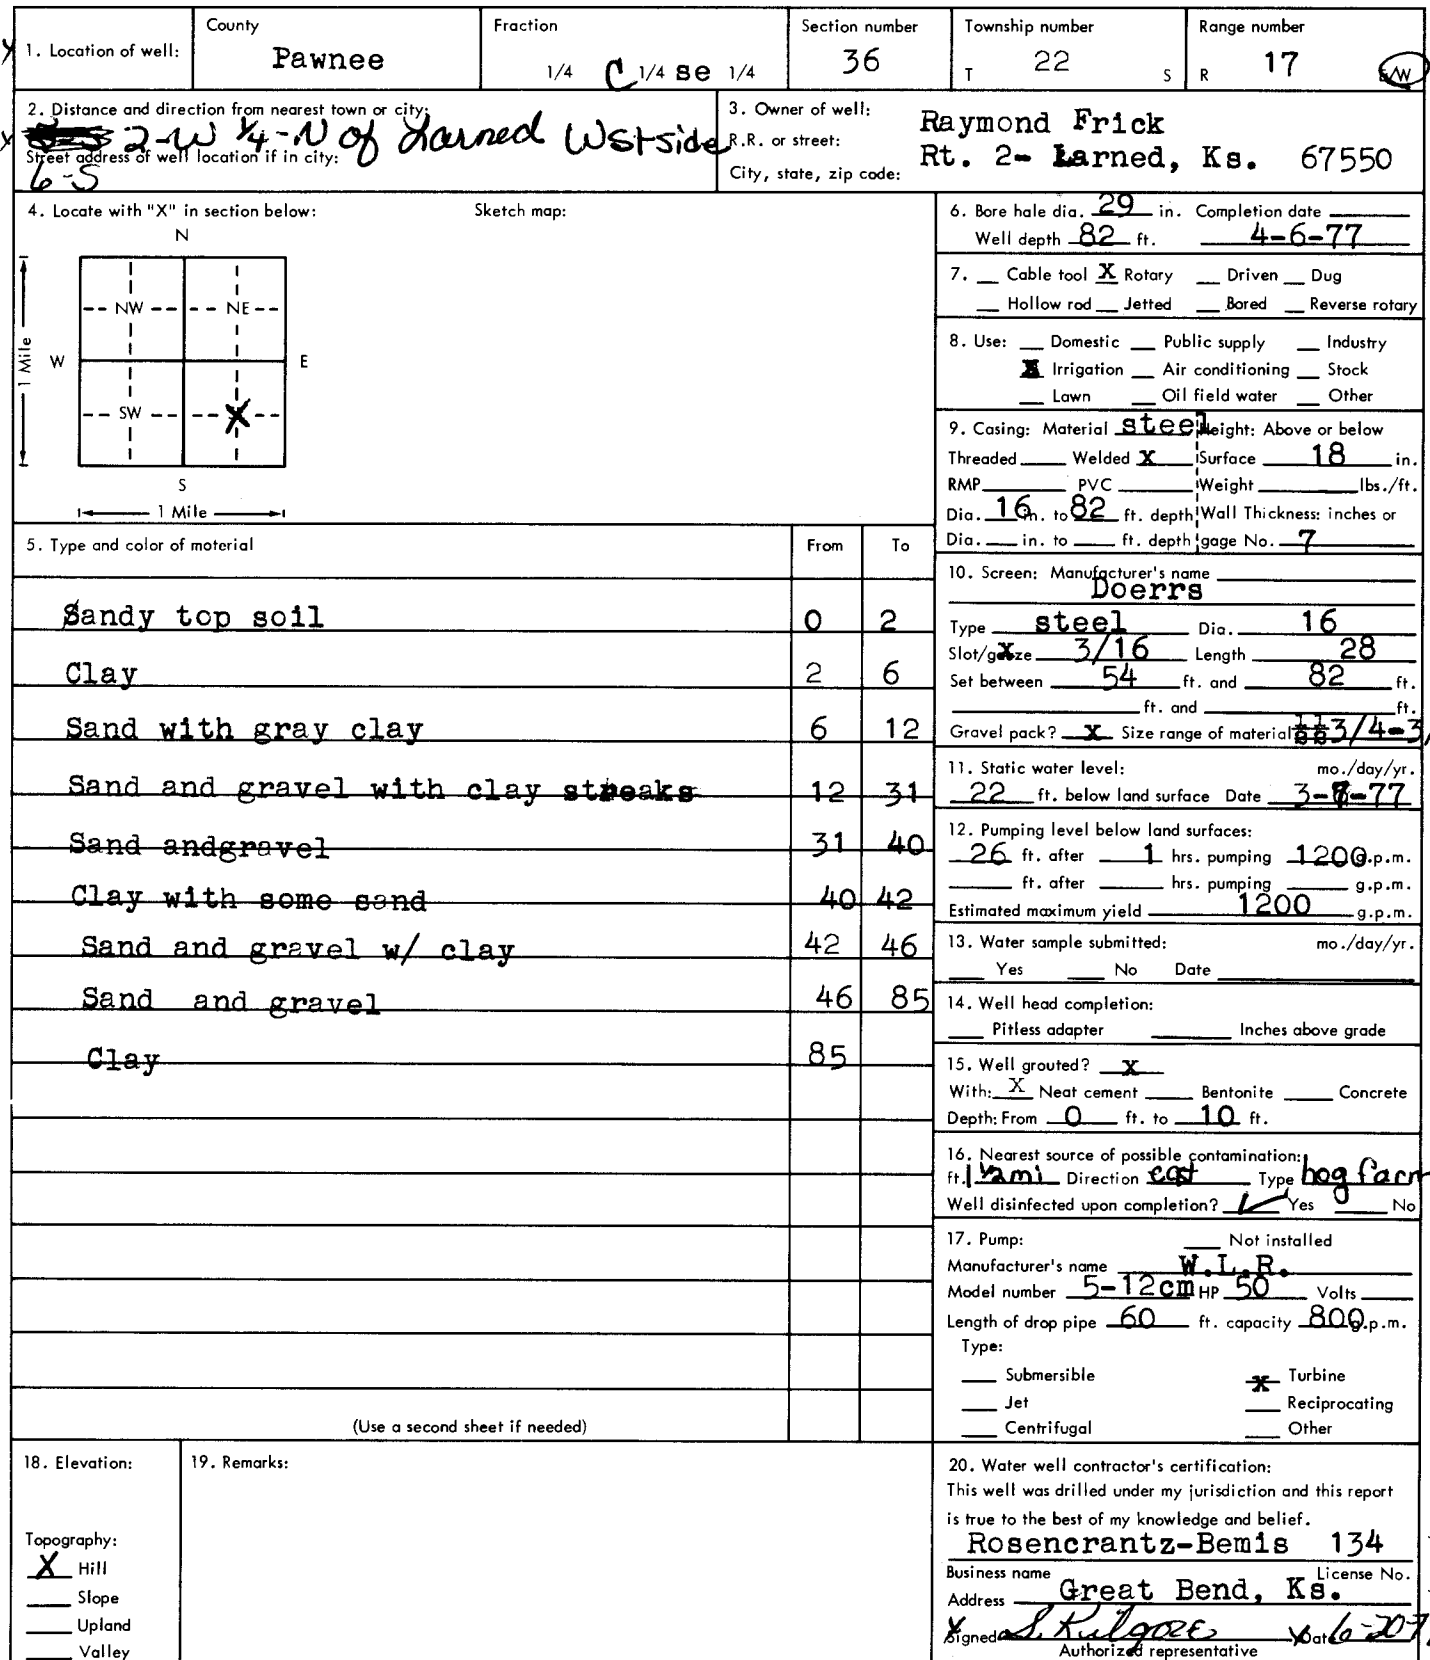 County Fraction Section number Township number Range number
1. Location of well: Pawnee 1/4 C 1/4 se 1/4 36 T 22 S R 17 E/W
2. Distance and direction from nearest town or city:
2-W 1/4-N of Larned Wstside
Street address of well location if in city:
6-S
3. Owner of well: Raymond Frick
R.R. or street: Rt. 2- Larned, Ks. 67550
City, state, zip code:
4. Locate with "X" in section below: Sketch map:
N
NW NE
1 Mile W E
SW X
S
1 Mile
5. Type and color of material From To
Sandy top soil 0 2
Clay 2 6
Sand with gray clay 6 12
Sand and gravel with clay streaks 12 31
Sand andgravel 31 40
Clay with some sand 40 42
Sand and gravel w/ clay 42 46
Sand and gravel 46 85
Clay 85
(Use a second sheet if needed)
6. Bore hale dia. 29 in. Completion date
Well depth 82 ft. 4-6-77
7. Cable tool X Rotary Driven Dug
Hollow rod Jetted Bored Reverse rotary
8. Use: Domestic Public supply Industry
X Irrigation Air conditioning Stock
Lawn Oil field water Other
9. Casing: Material steel Height: Above or below
Threaded Welded X Surface 18 in.
RMP PVC Weight lbs./ft.
Dia. 16 in. to 82 ft. depth Wall Thickness: inches or
Dia. in. to ft. depth gage No. 7
10. Screen: Manufacturer's name
Doerrs
Type steel Dia. 16
Slot/gauze 3/16 Length 28
Set between 54 ft. and 82 ft.
ft. and ft.
Gravel pack? X Size range of material 3/4-3/
11. Static water level: mo./day/yr.
22 ft. below land surface Date 3-8-77
12. Pumping level below land surfaces:
26 ft. after 1 hrs. pumping 1200 g.p.m.
ft. after hrs. pumping g.p.m.
Estimated maximum yield 1200 g.p.m.
13. Water sample submitted: mo./day/yr.
Yes No Date
14. Well head completion:
Pitless adapter Inches above grade
15. Well grouted? X
With: X Neat cement Bentonite Concrete
Depth: From 0 ft. to 10 ft.
16. Nearest source of possible contamination:
ft. 1 1/2 mi Direction east Type hog farm
Well disinfected upon completion? ✓ Yes No
17. Pump: Not installed
Manufacturer's name W.L.R.
Model number 5-12cm HP 50 Volts
Length of drop pipe 60 ft. capacity 800 g.p.m.
Type:
Submersible X Turbine
Jet Reciprocating
Centrifugal Other
18. Elevation:
Topography:
X Hill
Slope
Upland
Valley
19. Remarks:
20. Water well contractor's certification:
This well was drilled under my jurisdiction and this report
is true to the best of my knowledge and belief.
Rosencrantz-Bemis 134
Business name License No.
Address Great Bend, Ks.
Signed S. Kilgore Date 6-20-7
Authorized representative